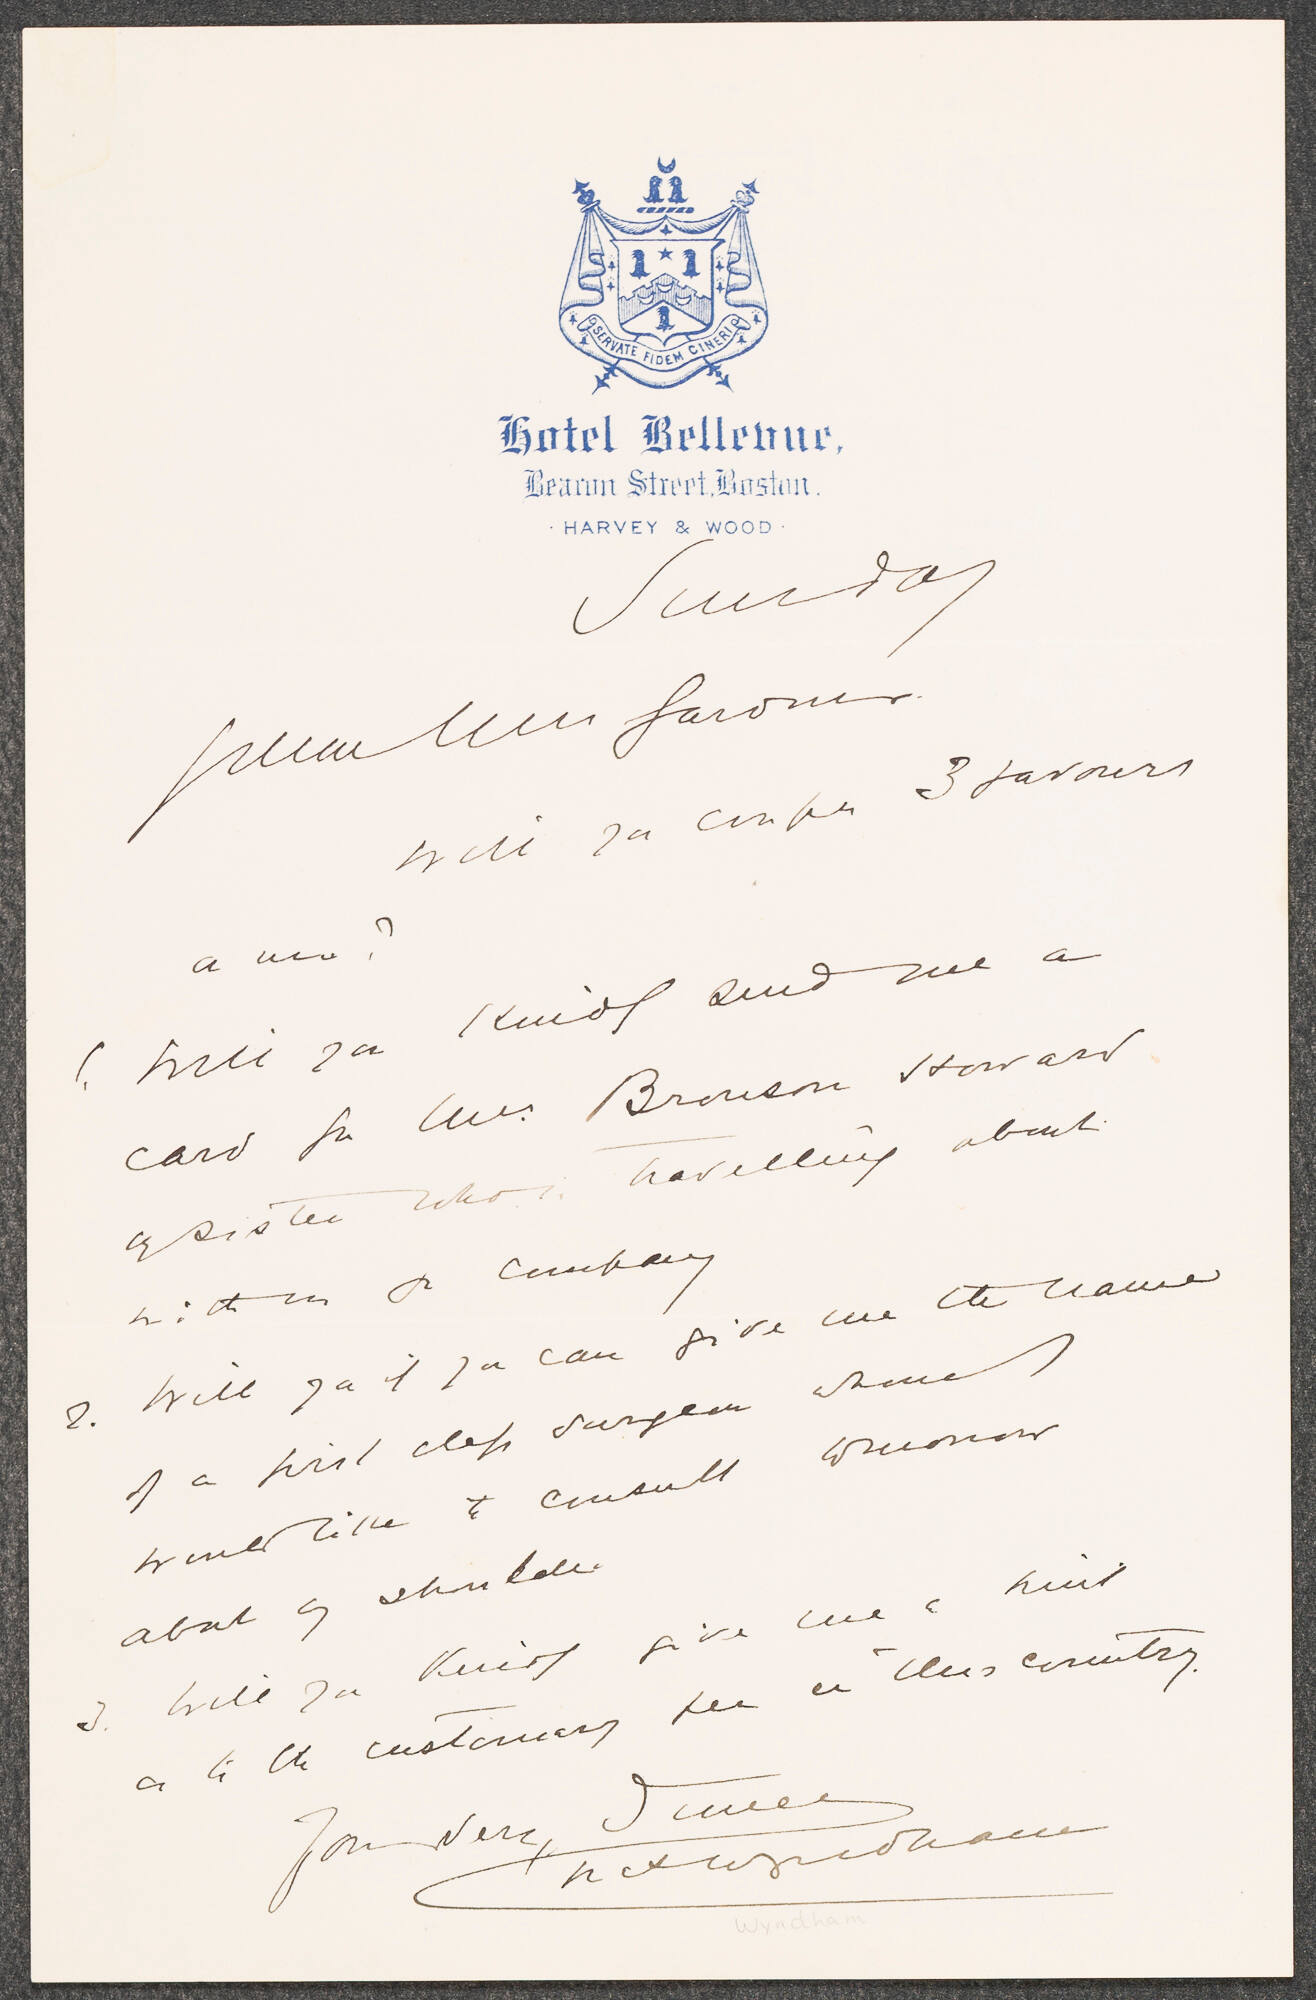 SERVATE FIDEM CINERI
Hotel Bellevue,
Beacon Street, Boston.
· HARVEY & WOOD ·
Sunday
Dear Mrs Gardner.
Will you confer 3 favours
on me?
1. Will you kindly send me a
card for Mrs. Bronson Howard
my sister who is travelling about
with us & company
2. Will you if you can give me the name
of a first class surgeon whom I
would like to consult tomorrow
about my shoulder.
3. Will you kindly give me a hint
as to the customary fee in this country.
Yours very Truly
Wyndham
Wyndham